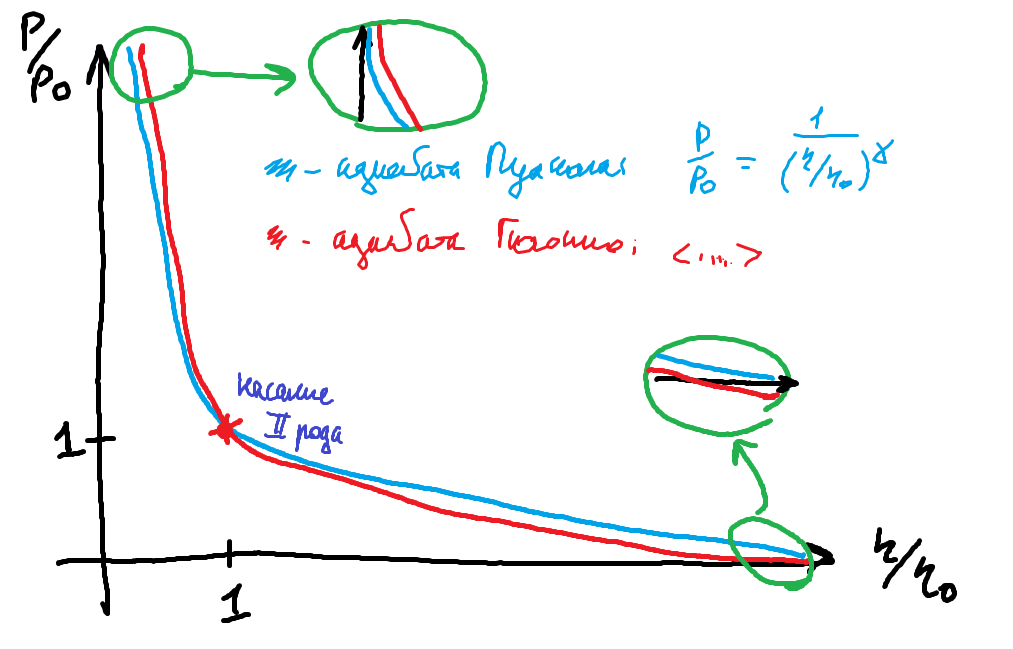 P/P₀
~ - адиабата Пуассона: P/P₀ = 1/(η/η₀)^γ
~ - адиабата Гюгонио: <...>
касание
II рода
1
1
η/η₀